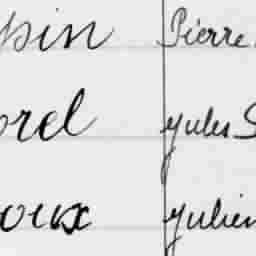 pin Pierre
orel Jules S
oux Julien